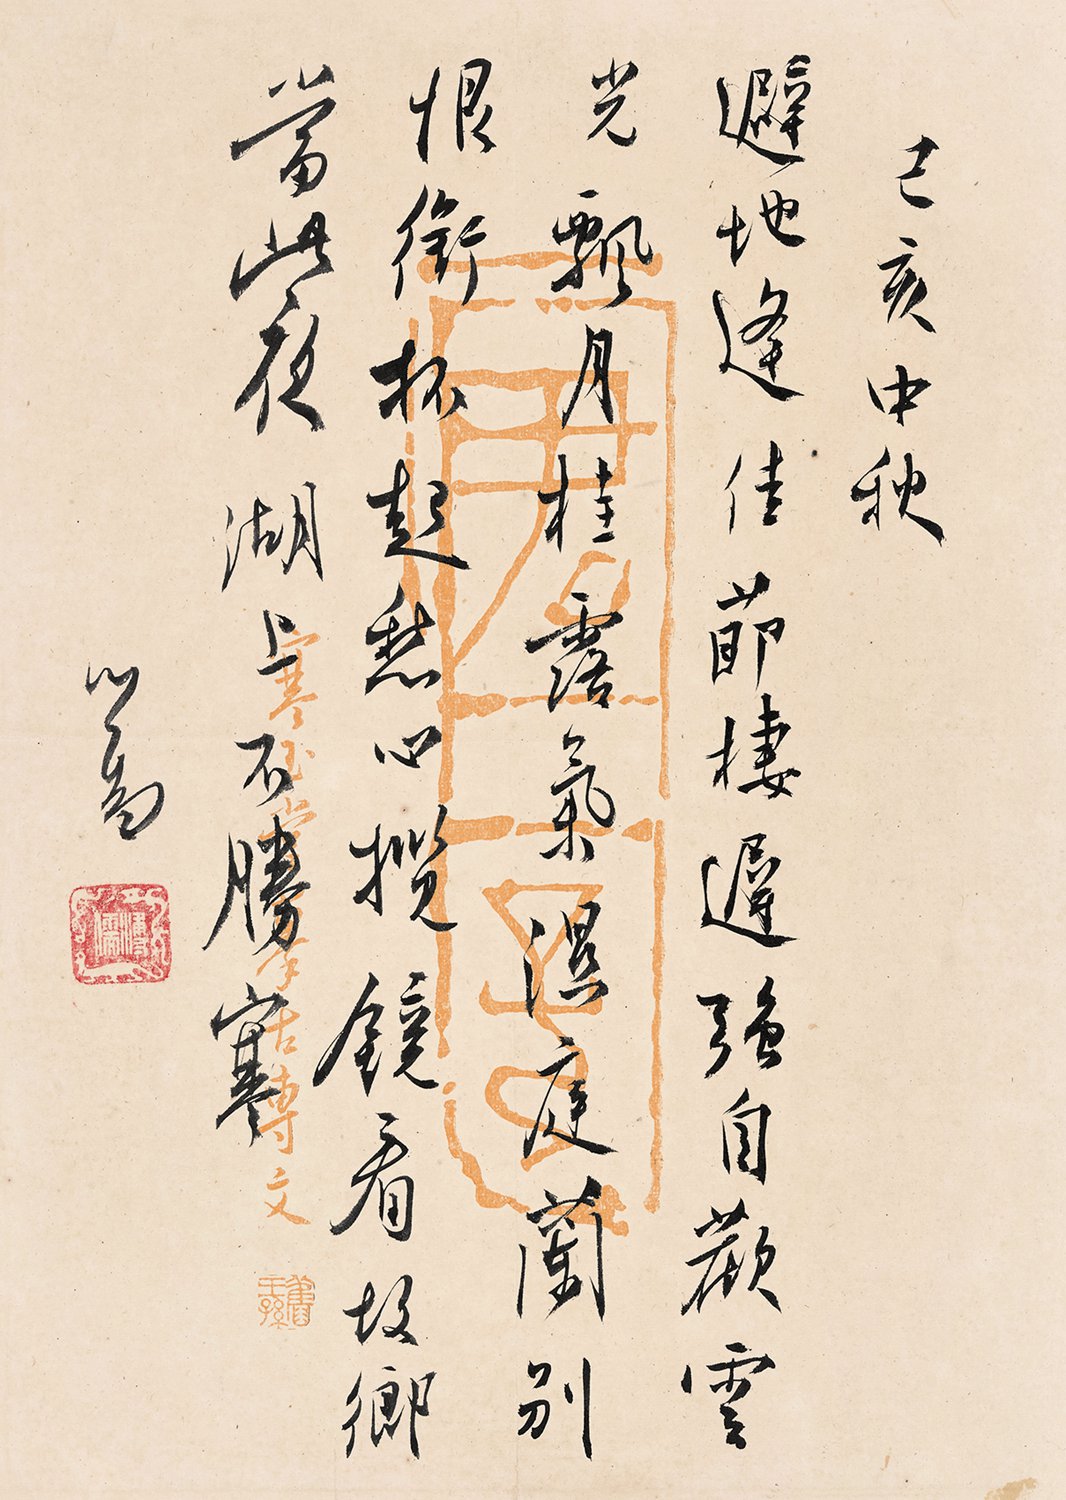 己亥中秋
避地逢佳節棲遲強自歡雲
光飄月桂露氣濕庭蘭別
恨銜杯起愁心攬鏡看故鄉
當此夜湖上不勝寒
心畬
寒玉堂摹古專文
舊王孫